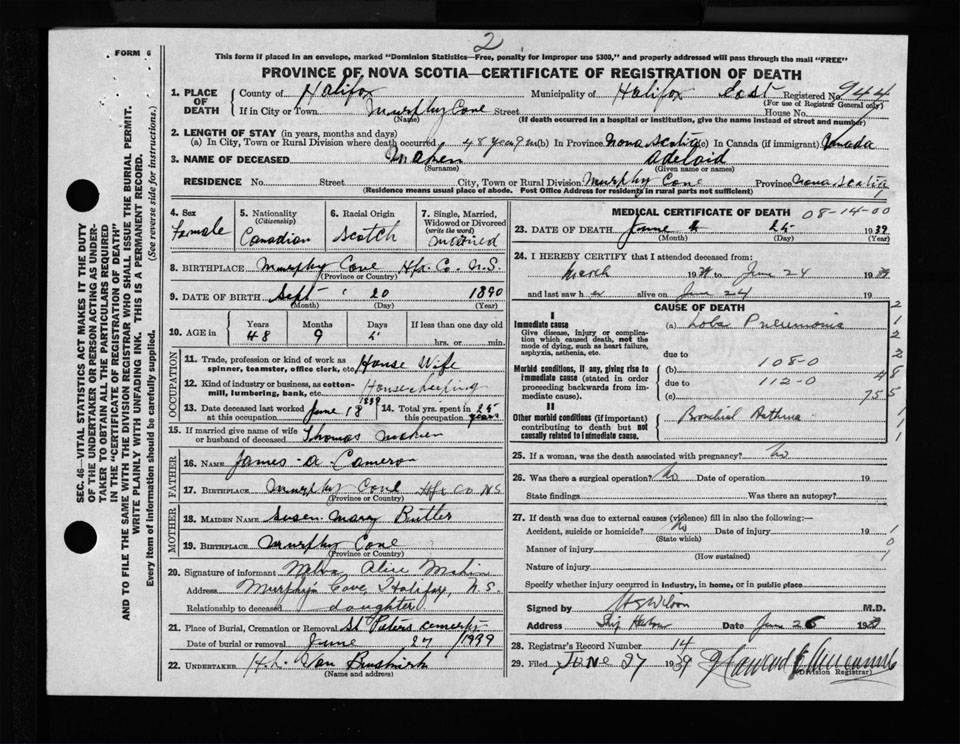 2
FORM 6
This form if placed in an envelope, marked "Dominion Statistics—Free, penalty for improper use $300," and properly addressed will pass through the mail "FREE"
PROVINCE OF NOVA SCOTIA—CERTIFICATE OF REGISTRATION OF DEATH
1. PLACE OF DEATH County of Halifax Municipality of Halifax East Registered No. 944
(For use of Registrar General only)
If in City or Town Murphy Cove Street House No.
(Name) (If death occurred in a hospital or institution, give the name instead of street and number)
2. LENGTH OF STAY (in years, months and days)
(a) In City, Town or Rural Division where death occurred 48 years 9 m (b) In Province Nova Scotia (c) In Canada (if immigrant) Canada
3. NAME OF DECEASED Mahen Adelaid
(Surname) (Given name or names)
RESIDENCE No. Street City, Town or Rural Division Murphy Cove Province Nova Scotia
(Residence means usual place of abode. Post Office Address for residents in rural parts not sufficient)
4. Sex Female
5. Nationality (Citizenship) Canadian
6. Racial Origin Scotch
7. Single, Married, Widowed or Divorced (write the word) Married
8. BIRTHPLACE Murphy Cove Hfx. Co. N.S.
(Province or Country)
9. DATE OF BIRTH Sept 20 1890
(Month) (Day) (Year)
10. AGE in Years Months Days If less than one day old
48 9 hrs. or min.
OCCUPATION
11. Trade, profession or kind of work as spinner, teamster, office clerk, etc. House Wife
12. Kind of industry or business, as cotton-mill, lumbering, bank, etc. Housekeeping
13. Date deceased last worked at this occupation June 18 1939 14. Total yrs. spent in this occupation 25 years
15. If married give name of wife or husband of deceased Thomas Mahen
FATHER
16. NAME James A Cameron
17. BIRTHPLACE Murphy Cove Hfx Co NS
(Province or Country)
MOTHER
18. MAIDEN NAME Susen Mary Butler
19. BIRTHPLACE Murphy Cove
(Province or Country)
20. Signature of informant Melva Alice Mahin
Address Murphy Cove, Halifax, N.S.
Relationship to deceased daughter
21. Place of Burial, Cremation or Removal St Peters
Date of burial or removal June 27 1939
22. UNDERTAKER H. L. Van Buskirk
(Name and address)
MEDICAL CERTIFICATE OF DEATH 08-14-00
23. DATE OF DEATH June 25 1939
(Month) (Day) (Year)
24. I HEREBY CERTIFY that I attended deceased from:
March 1939 to June 24 1939
and last saw her alive on June 24 19
CAUSE OF DEATH
I
Immediate cause (a) Lobar Pneumonia
Give disease, injury or complication which caused death, not the mode of dying, such as heart failure, asphyxia, asthenia, etc.
due to
Morbid conditions, if any, giving rise to immediate cause (stated in order proceeding backwards from immediate cause).
(b) 108-0
due to 112-0
(c) 75
II
Other morbid conditions (if important) contributing to death but not causally related to immediate cause. Bronchial Asthma
25. If a woman, was the death associated with pregnancy? No
26. Was there a surgical operation? No Date of operation 19
State findings Was there an autopsy?
27. If death was due to external causes (violence) fill in also the following:—
Accident, suicide or homicide? No Date of injury 19
(State which)
Manner of injury
(How sustained)
Nature of injury
Specify whether injury occurred in industry, in home, or in public place
Signed by HS Wilson M.D.
Address Ship Harbour Date June 26 1939
28. Registrar's Record Number 14
29. Filed June 27 1939
(Division Registrar)
SEC. 46—VITAL STATISTICS ACT MAKES IT THE DUTY OF THE UNDERTAKER OR PERSON ACTING AS UNDERTAKER TO OBTAIN ALL THE PARTICULARS REQUIRED IN THE "CERTIFICATE OF REGISTRATION OF DEATH" AND TO FILE THE SAME WITH THE DIVISION REGISTRAR WHO SHALL ISSUE THE BURIAL PERMIT.
WRITE PLAINLY WITH UNFADING INK. THIS IS A PERMANENT RECORD.
Every item of information should be carefully supplied. (See reverse side for instructions.)